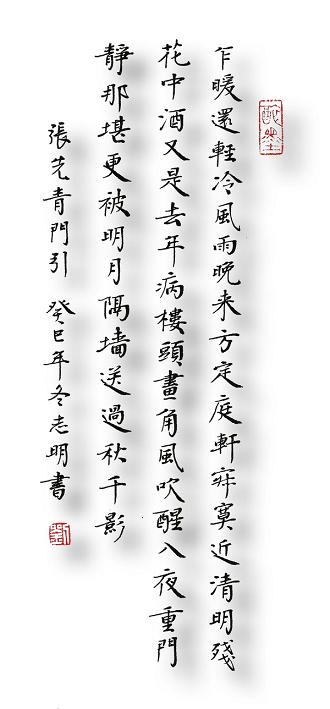 乍暖還輕冷風雨晚来方定庭軒寂寞近清明殘
花中酒又是去年病樓頭畫角風吹醒入夜重門
靜那堪更被明月隔墻送過秋千影
張先青門引 癸巳年冬志明書